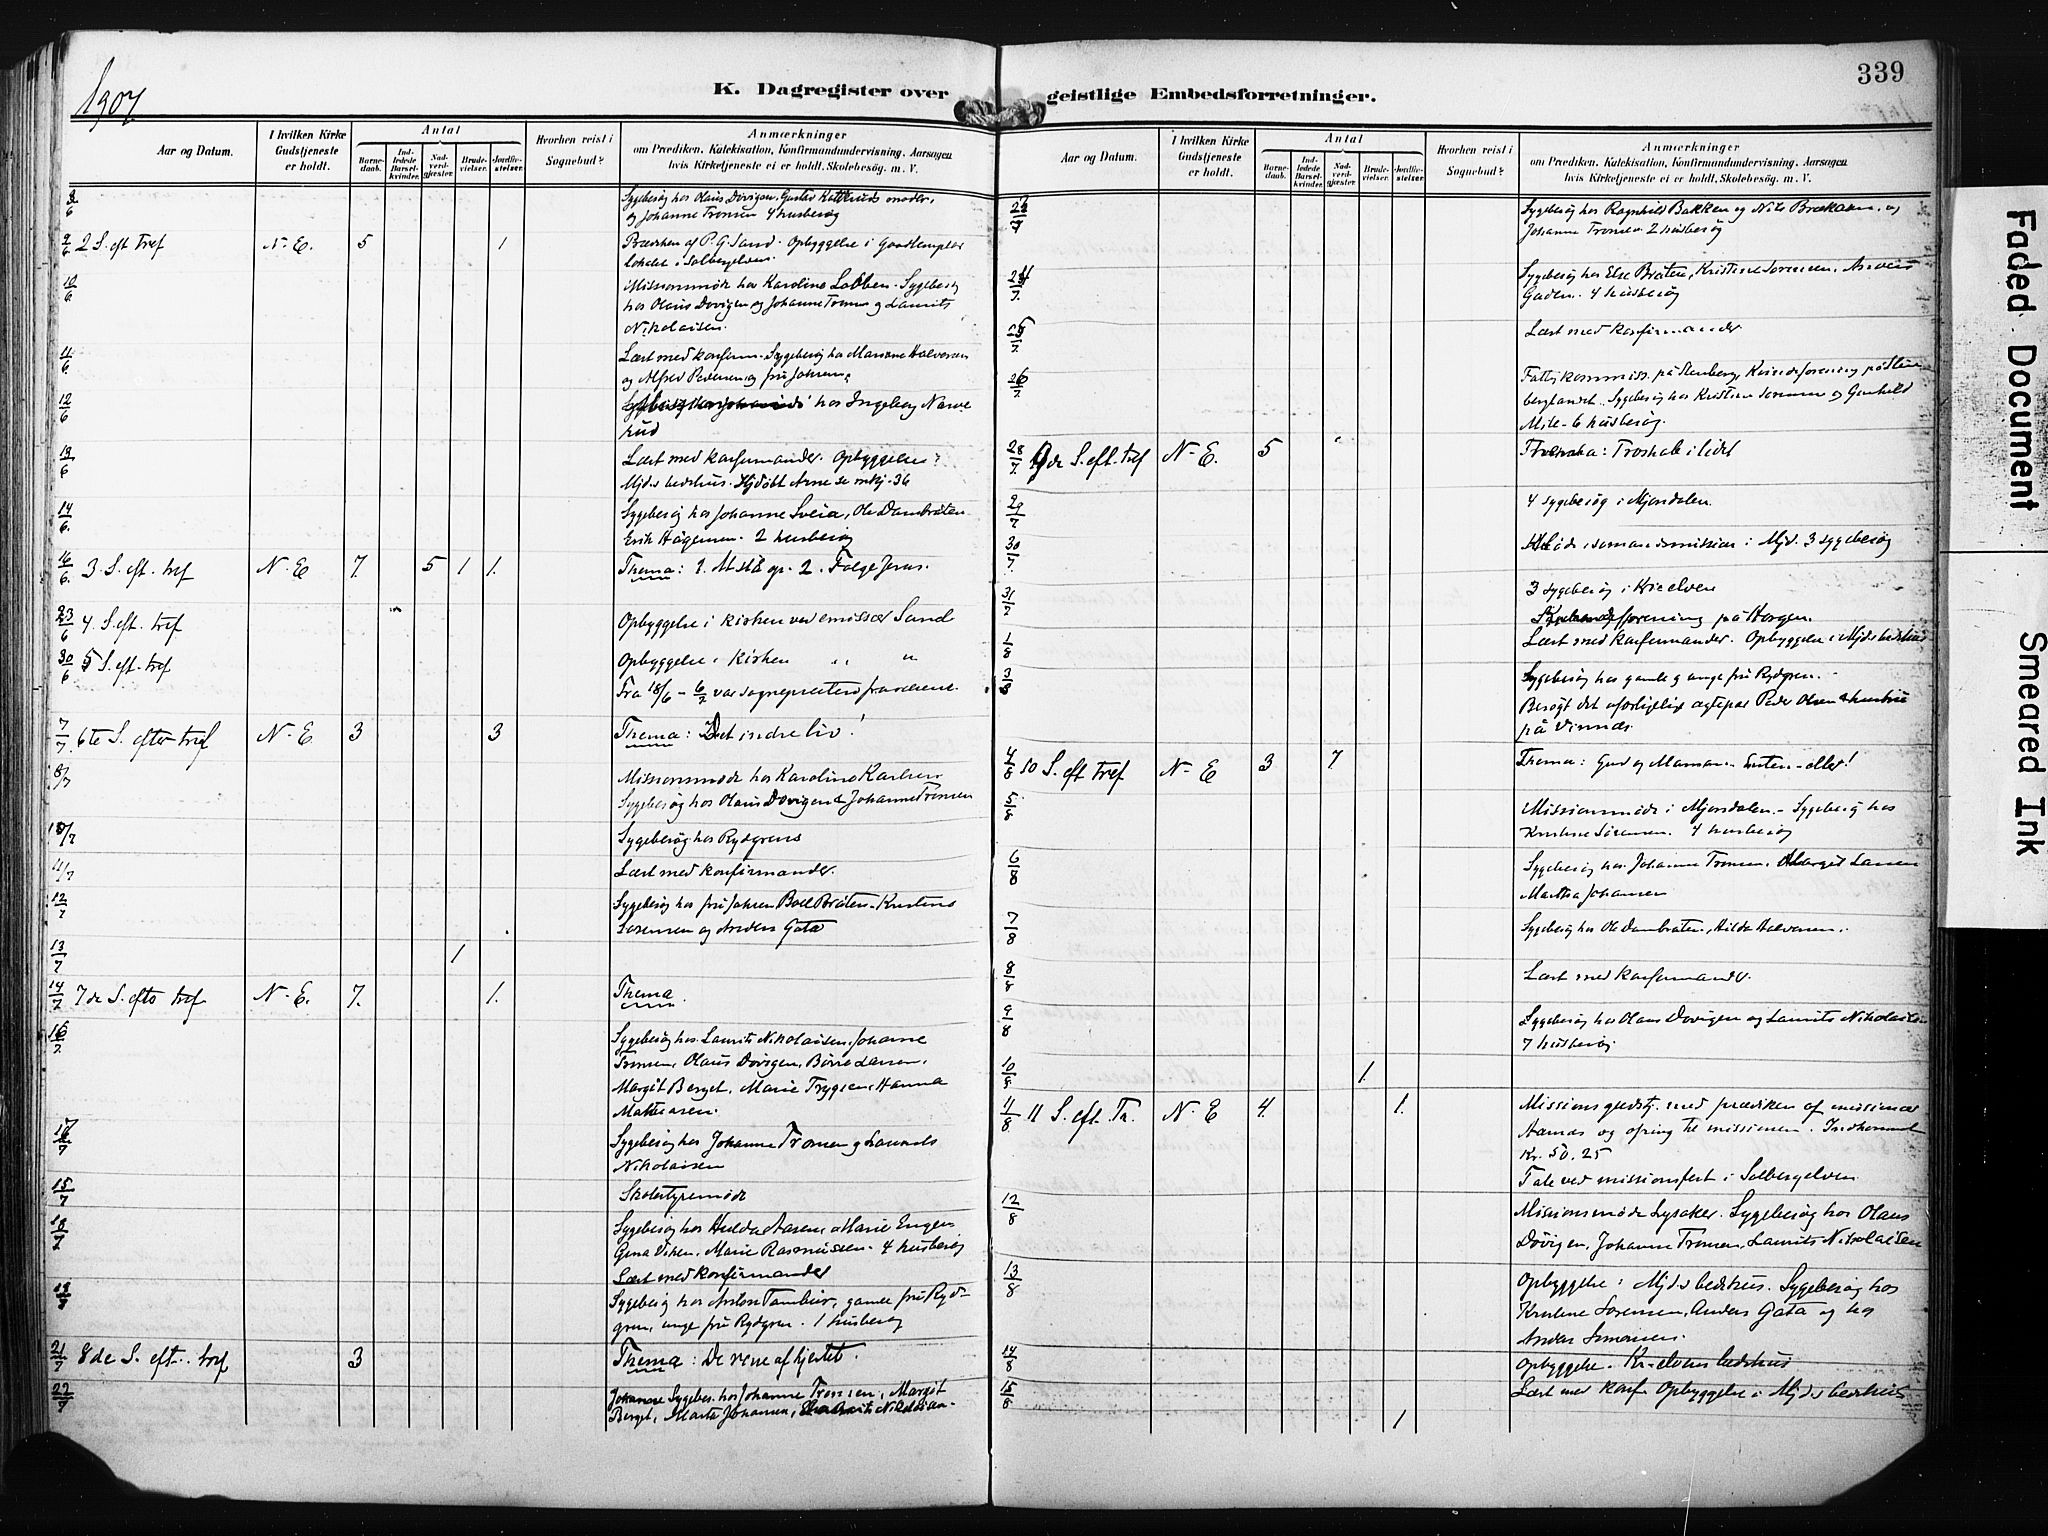 1907.
K. Dagregister over geistlige Embedsforretninger.
339
Aar og Datum.
I hvilken Kirke Gudstjeneste er holdt.
Antal
Barnedaab.
Indledede Barselkvinder.
Nadverdgjæster.
Brudevielser.
Jordfæstelser.
Hvorhen reist i Sognebud?
Anmærkninger
om Prædiken, Katekisation, Konfirmandundervisning, Aarsagen
hvis Kirketjeneste ei er holdt, Skolebesög. m. V.
Sygebesøg hos Olaus Dövigen, Gustav moder,
og Johanne Tronsen 4 husbesøg
9/6 2 S. eft tref N.E. 5 1 af P. G. Sand. Opbyggelse i Goodtemplar
lokalet i Solbergelven
10/6 Missionsmøde hos Karoline Sygebesøg
hos Olaus Dovigen og Johanne Tronsen og Laurits
Nikolaisen.
11/6 Læst med konfirm. Sygebesøg hos Mariane Halvorsen
og Alfred og fru Johnsen
12/6 hos Ingeborg Narverud
13/6 Læst med konfirmander. Opbyggelse i
Mjd.s bedehus. Hjdöbt Arne se mkj. 36
14/6. Sygebesøg hos Johanne Sveia, Ole Dambråten
Erik Hågensen. 2 husbesøg
16/6. 3. S. eft. tref N.E 7. 5 1 1. Thema: 1. At stå op. 2. Følge Jesus.
23/6 4. S. eft. tref Opbyggelse i kirken ved emissær Sand
30/6 5 S. eft. tref Opbyggelse i kirken " "
Fra 18/6 – 6/7 var sognepresten fraværende.
7/7. 6te S. efter tref N.E. 3 3 Thema: Det indre liv!
8/7 Missionsmøde hos Karoline Karlsen
Sygebesøg hos Olaus Dovigen & Johanne Tronsen
10/7 Sygebesøg hos Rydgrens
11/7 Læst med konfirmander.
12/7 Sygebesøg hos fru Johnsen Bråten. Kristine
Sorensen og Anders Gata
13/7 1
14/7 7de S. efter tref N.E. 7. 1. Thema.
16/7. Sygebesøg hos Laurits Nikolaisen, Johanne
Tronsen, Olaus Dövigen, Börre Larsen,
Margit Berget, Marie Trygsen, Hanna
Mathiasen.
17/7 Sygebesøg hos Johanne Tronsen og Laurits
Nikolaisen
15/7 Skolestyremøde
18/7 Sygebesøg hos Hulda Aasen, Marie Engen
Gina Viken, Marie Rasmussen. 4 husbesøg
Læst med konfirmander
19/7 Sygebesøg hos Anton Tambur, gamle fru Rydgren,
unge fru Rydgren. 1 husbesøg
21/7 8de S. eft. tref 3 Thema: De rene af hjertet.
22/7 Sygebes. hos Johanne Tronsen, Margit
Berget, Marta Johansen, Laurits Nikolaisen.
Aar og Datum.
I hvilken Kirke Gudstjeneste er holdt.
Antal
Barnedaab.
Indledede Barselkvinder.
Nadverdgjæster.
Brudevielser.
Jordfæstelser.
Hvorhen reist i Sognebud?
Anmærkninger
om Prædiken, Katekisation, Konfirmandundervisning, Aarsagen
hvis Kirketjeneste ei er holdt, Skolebesög. m. V.
Sygebesøg hos Ragnhild Bakken og Nils og
Johanne Tronsen. 2 husbesøg
24/7. Sygebesøg hos Else Bråten, Kristine Sorensen, Anders
Gaden. 4 husbesøg
25/7. Læst med konfirmander
26/7. Fattigkommiss. på Stenberg. Kvindeforening på Stenberglandet.
Sygebesøg hos Kristine Sorensen og Gunhild
Mile. 6 husbesøg.
28/7. 9de S. eft. tref N.E. 5 Thema: Troskab i lidet
29/7 4 sygebesøg i Mjøndalen.
30/7. Møde i sømandsmission i Mjd. 3 sygebesøg
31/7 3 sygebesøg i
Kvindeforening på Horgen.
1/8 Læst med konfirmander. Opbyggelse i Mjd.s bedehus
3/8 Sygebesøg hos gamle og unge fru Rydgren.
Besøgt det uforligelige ægtepar Peder Olsen & hustru
på Vinnæs
4/8 10 S. eft tref N.E 3 7 Thema: Gud og Mamon. Enten-eller!
5/8 Missionsmøde i Mjøndalen. Sygebesøg hos
Kristine Sørensen. 4 husbesøg
6/8 Sygebesøg hos Johanne Tronsen, Margit Larsen
Martha Johansen
7/8 Sygebesøg hos Ole Dambråten, Hilda Halvorsen.
8/8 Læst med konfirmander.
9/8 Sygebesøg hos Olaus Dovigen og Laurits Nikolaisen
7 husbesøg
10/8 1.
11/8 11 S. eft. Tr. N.E 4. 1. Missionsgudstj. med prædiken af missionær
Aarnæs og ofring til missionen. Indkommet
Kr. 50.25
Tale ved missionsfest i Solbergelven
12/8 Missionsmøde Lysaker. Sygebesøg hos Olaus
Dövigen, Johanne Tronsen, Laurits Nikolaisen
13/8 Opbyggelse i Mjd.s bedehus. Sygebesøg hos
Kristine Sorensen, Anders Gata og hos
Anders Simonsen.
14/8 Opbyggelse. Kr-elvens bedehus
15/8 Læst med konf. Opbyggelse i Mjd.s bedehus
1
Faded Document
Smeared Ink